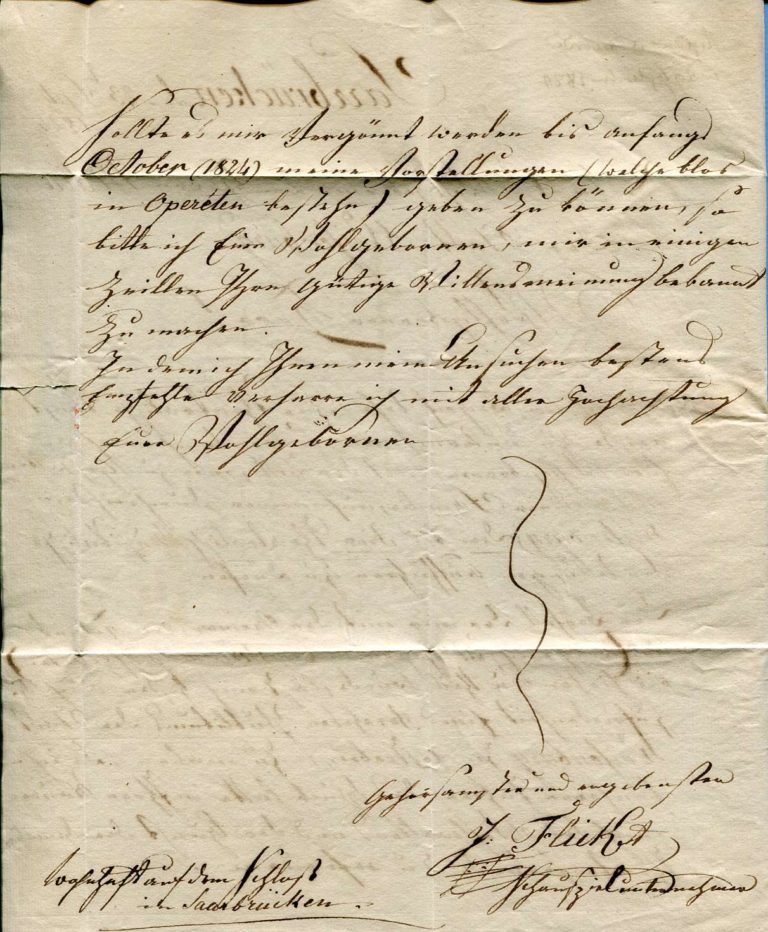 Sollte es mir Vergönnt werden bis anfangs
October (1824) meine Vorstellungen (welche blos
in Operéten bestehn) geben zu können, so
bitte ich Euer Wohlgebornen, mir in einigen
Zeillen Ihre gütige Willensmeinung bekannt
zu machen.
In dem ich Ihnen mein Ansuchen bestens
Empfehle verharre ich mit aller Hochachtung
Euer Wohlgebornen
Gehorsamster und ergebensten
J: Flückt
Schauspielunternehmer
wohnhaft auf dem Schloß
in Saarbrücken.